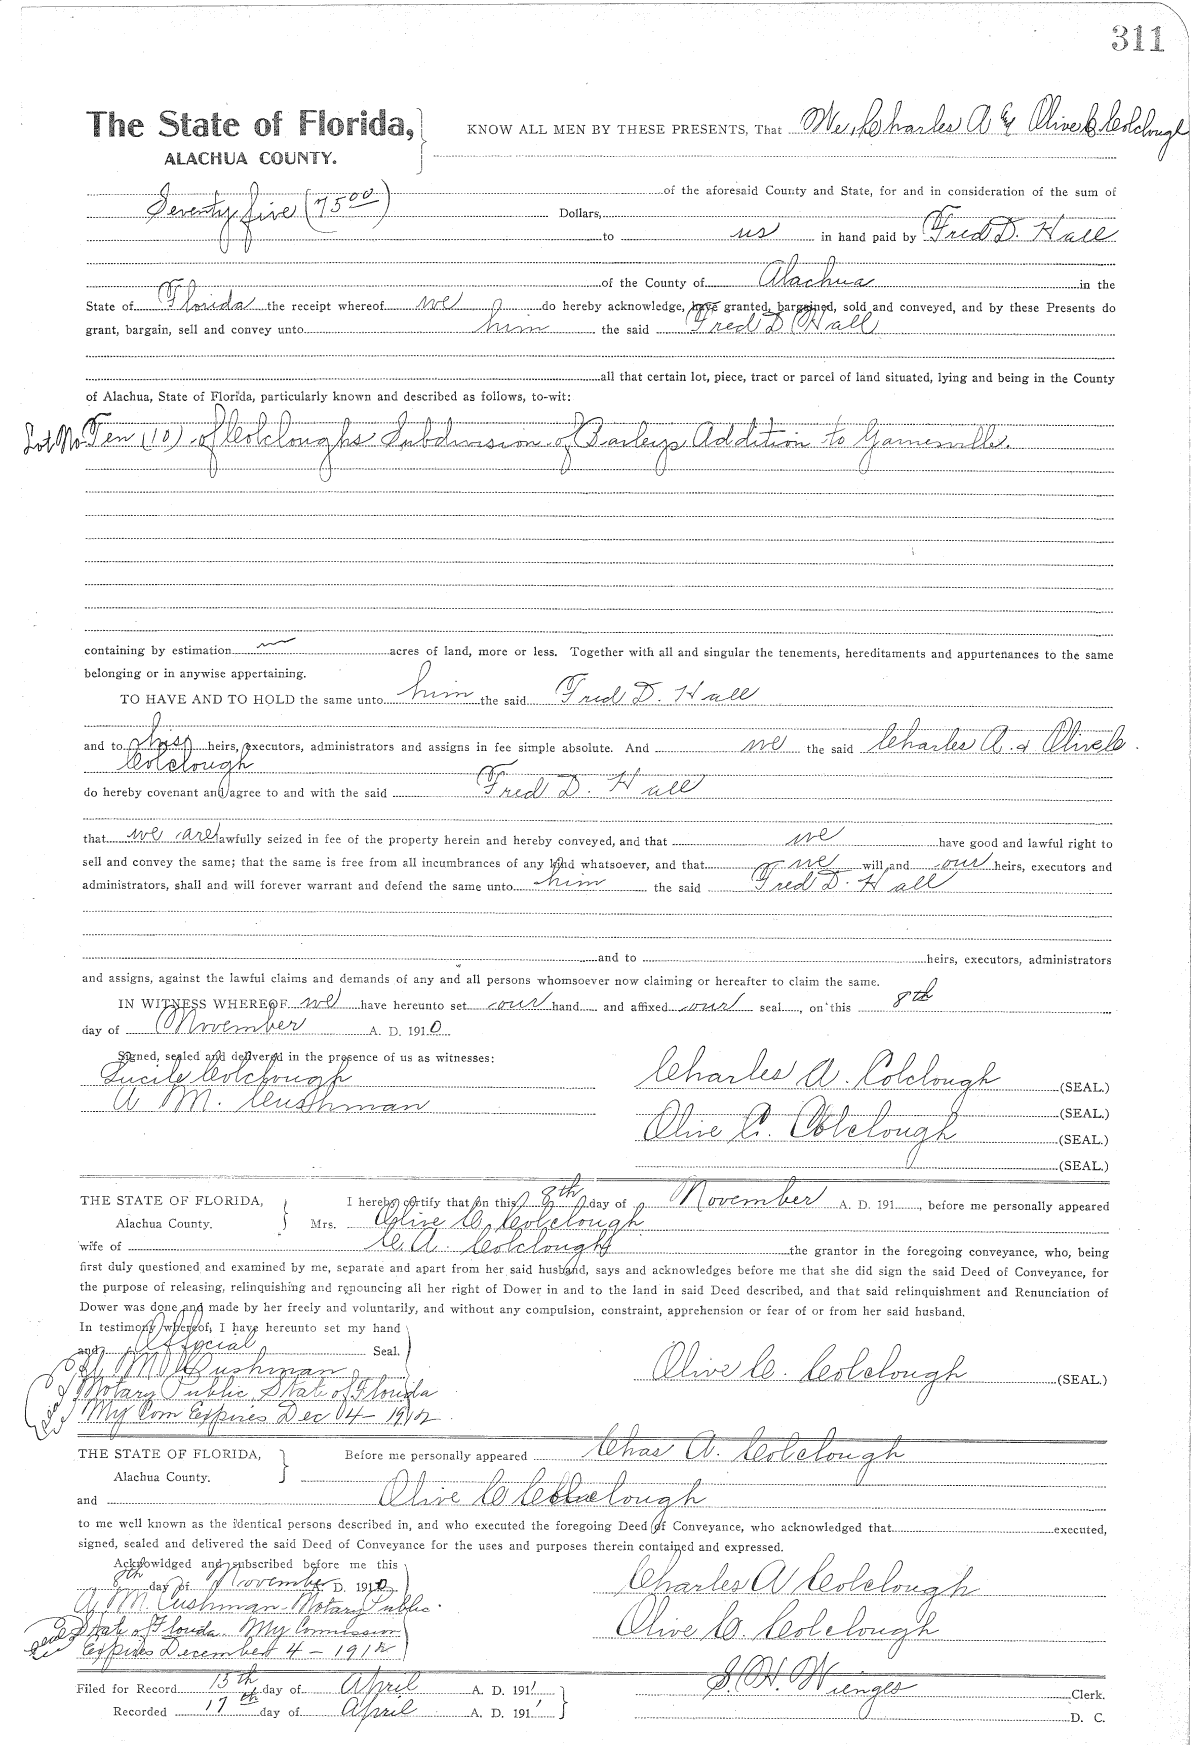 311
The State of Florida, KNOW ALL MEN BY THESE PRESENTS, That We, Charles A & Olive C Colclough
ALACHUA COUNTY.
of the aforesaid County and State, for and in consideration of the sum of
Seventy five (75 00) Dollars,
to us in hand paid by Fred D. Hall
of the County of Alachua in the
State of Florida the receipt whereof we do hereby acknowledge, have granted, bargained, sold and conveyed, and by these Presents do
grant, bargain, sell and convey unto him the said Fred D Hall
all that certain lot, piece, tract or parcel of land situated, lying and being in the County
of Alachua, State of Florida, particularly known and described as follows, to-wit:
Lot No Ten (10) of Colcloughs Subdivision of Baileys Addition to Gainesville.
containing by estimation acres of land, more or less. Together with all and singular the tenements, hereditaments and appurtenances to the same
belonging or in anywise appertaining.
TO HAVE AND TO HOLD the same unto him the said Fred D. Hall
and to his heirs, executors, administrators and assigns in fee simple absolute. And we the said Charles A. & Olive C.
Colclough
do hereby covenant and agree to and with the said Fred D. Hall
that we are lawfully seized in fee of the property herein and hereby conveyed, and that we have good and lawful right to
sell and convey the same; that the same is free from all incumbrances of any kind whatsoever, and that we will and our heirs, executors and
administrators, shall and will forever warrant and defend the same unto him the said Fred D. Hall
and to heirs, executors, administrators
and assigns, against the lawful claims and demands of any and all persons whomsoever now claiming or hereafter to claim the same.
IN WITNESS WHEREOF we have hereunto set our hand and affixed our seal, on this 8th
day of November A. D. 1910
Signed, sealed and delivered in the presence of us as witnesses:
Lucile Colclough Charles A. Colclough (SEAL.)
A M. Cushman (SEAL.)
Olive C. Colclough (SEAL.)
(SEAL.)
THE STATE OF FLORIDA, I hereby certify that on this 8th day of November A. D. 191 , before me personally appeared
Alachua County. Mrs. Olive C. Colclough
wife of C. A. Colclough the grantor in the foregoing conveyance, who, being
first duly questioned and examined by me, separate and apart from her said husband, says and acknowledges before me that she did sign the said Deed of Conveyance, for
the purpose of releasing, relinquishing and renouncing all her right of Dower in and to the land in said Deed described, and that said relinquishment and Renunciation of
Dower was done and made by her freely and voluntarily, and without any compulsion, constraint, apprehension or fear of or from her said husband.
In testimony whereof, I have hereunto set my hand
and Official Seal.
A. M. Cushman Olive C. Colclough (SEAL.)
Notary Public, State of Florida
My Com Expires Dec 4 - 1912.
THE STATE OF FLORIDA, Before me personally appeared Chas A. Colclough
Alachua County.
and Olive C Colclough
to me well known as the identical persons described in, and who executed the foregoing Deed of Conveyance, who acknowledged that executed,
signed, sealed and delivered the said Deed of Conveyance for the uses and purposes therein contained and expressed.
Ackowldged and subscribed before me this
8th day of November A. D. 1910 Charles A Colclough
A. M. Cushman - Notary Public.
State of Florida. My Commission Olive C. Colclough
Expires December 4 - 1912
Filed for Record 15th day of April A. D. 1911 S. H. Wienges Clerk.
Recorded 17th day of April A. D. 1911 D. C.